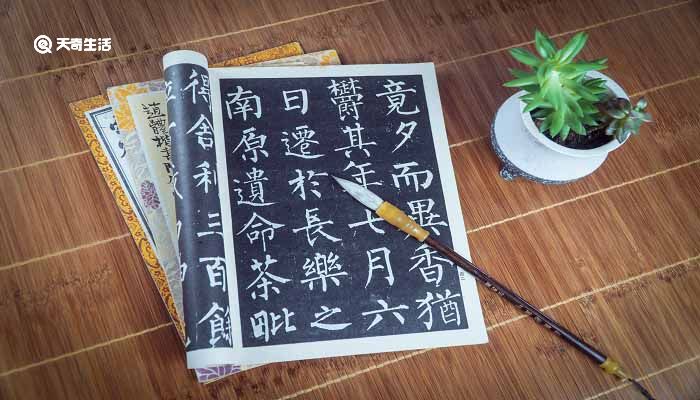 天奇生活
竟夕而異香猶
欝其年七月六
日遷於長樂之
南原遺命茶毗
得舍利三百餘